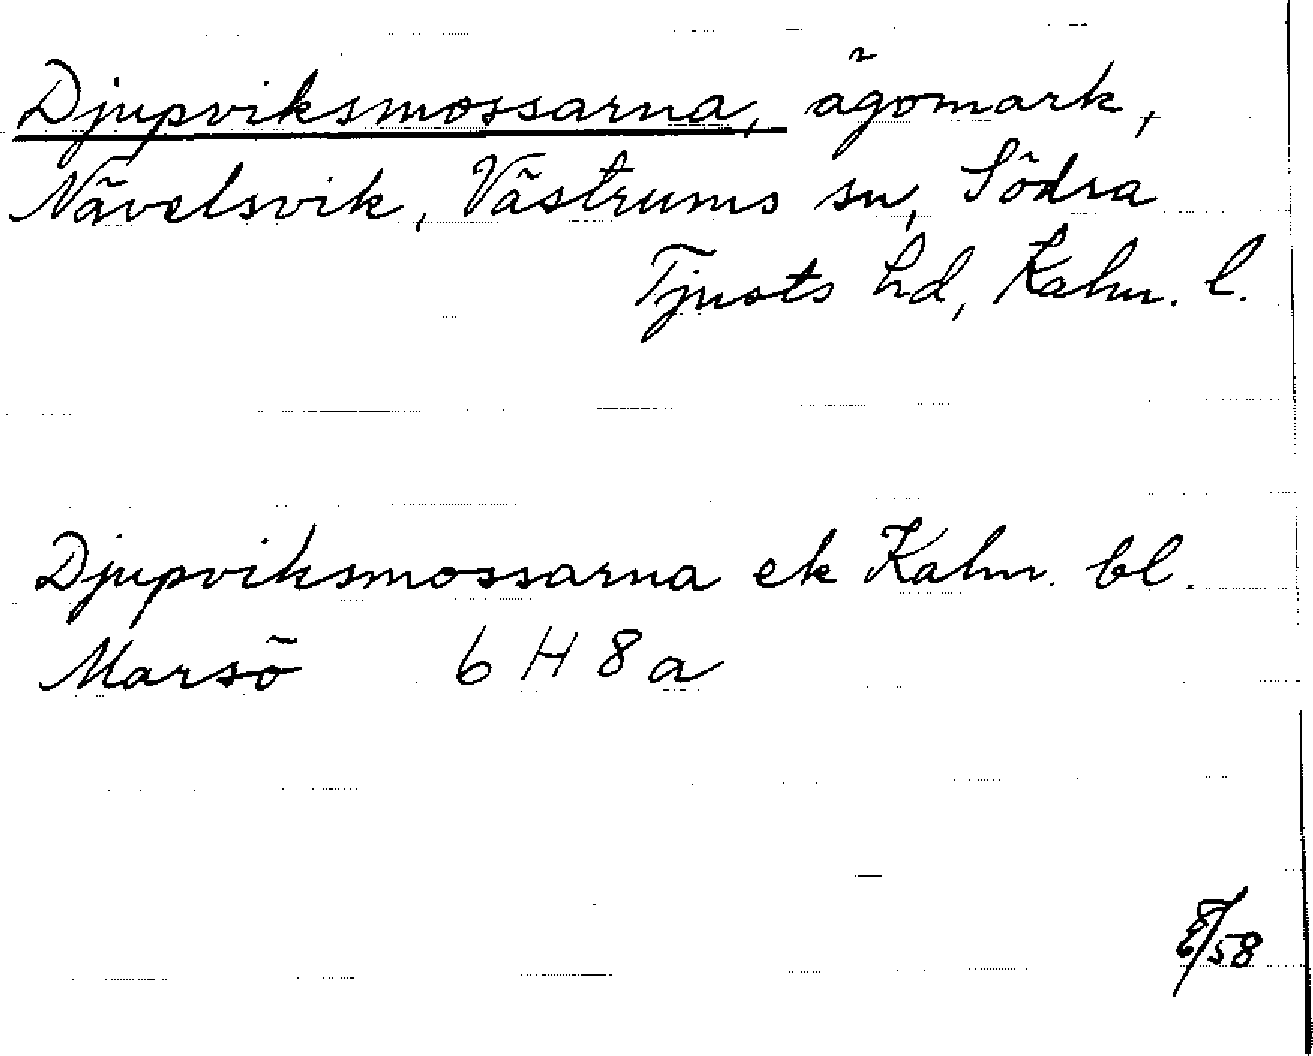 Djupviksmossarna, ägomark,
Nävelsvik, Västrums sn, Södra
Tjusts hd, Kalm. l.
Djupviksmossarna ek Kalm. bl.
Marsö 6 H 8 a
58